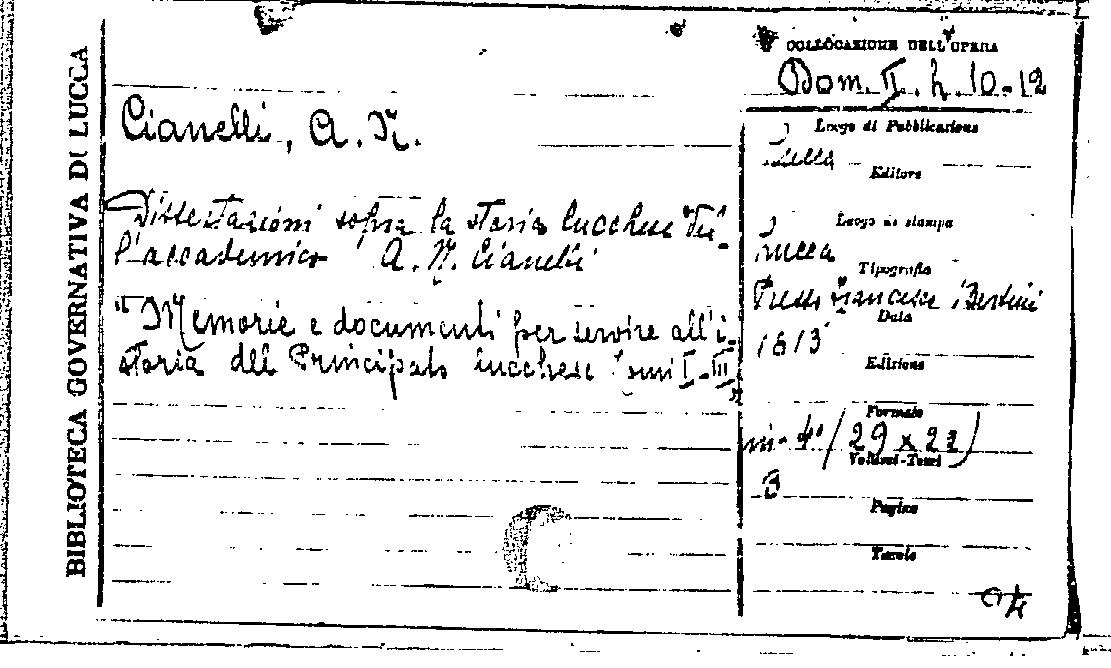 BIBLIOTECA GOVERNATIVA DI LUCCA
COLLOCAZIONE DELL'OPERA
Dom. II. h. 10-12
Cianelli, A. N.
Dissertazioni sopra la storia lucchese del-
l'accademico A. N. Cianelli
"Memorie e documenti per servire all'i-
storia del Principato lucchese tomi I-III"
Luogo di Pubblicazione
Lucca
Editore
Luogo di stampa
Lucca
Tipografia
Presso Francesco Bertini
Data
1813
Edizione
Formato
in-4° (29 x 22)
Volumi-Tomi
3
Pagine
Tavole